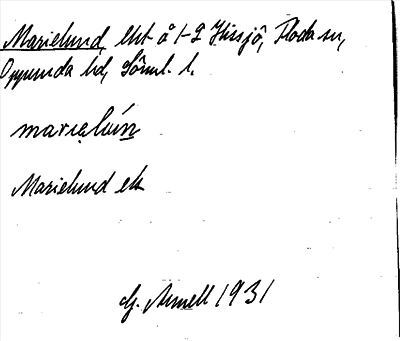 Marielund, lht å 1-2 Hissjö, Floda sn,
Oppunda hd, Söml. l.
marialún
Marielund ek
G. Arnell 1931